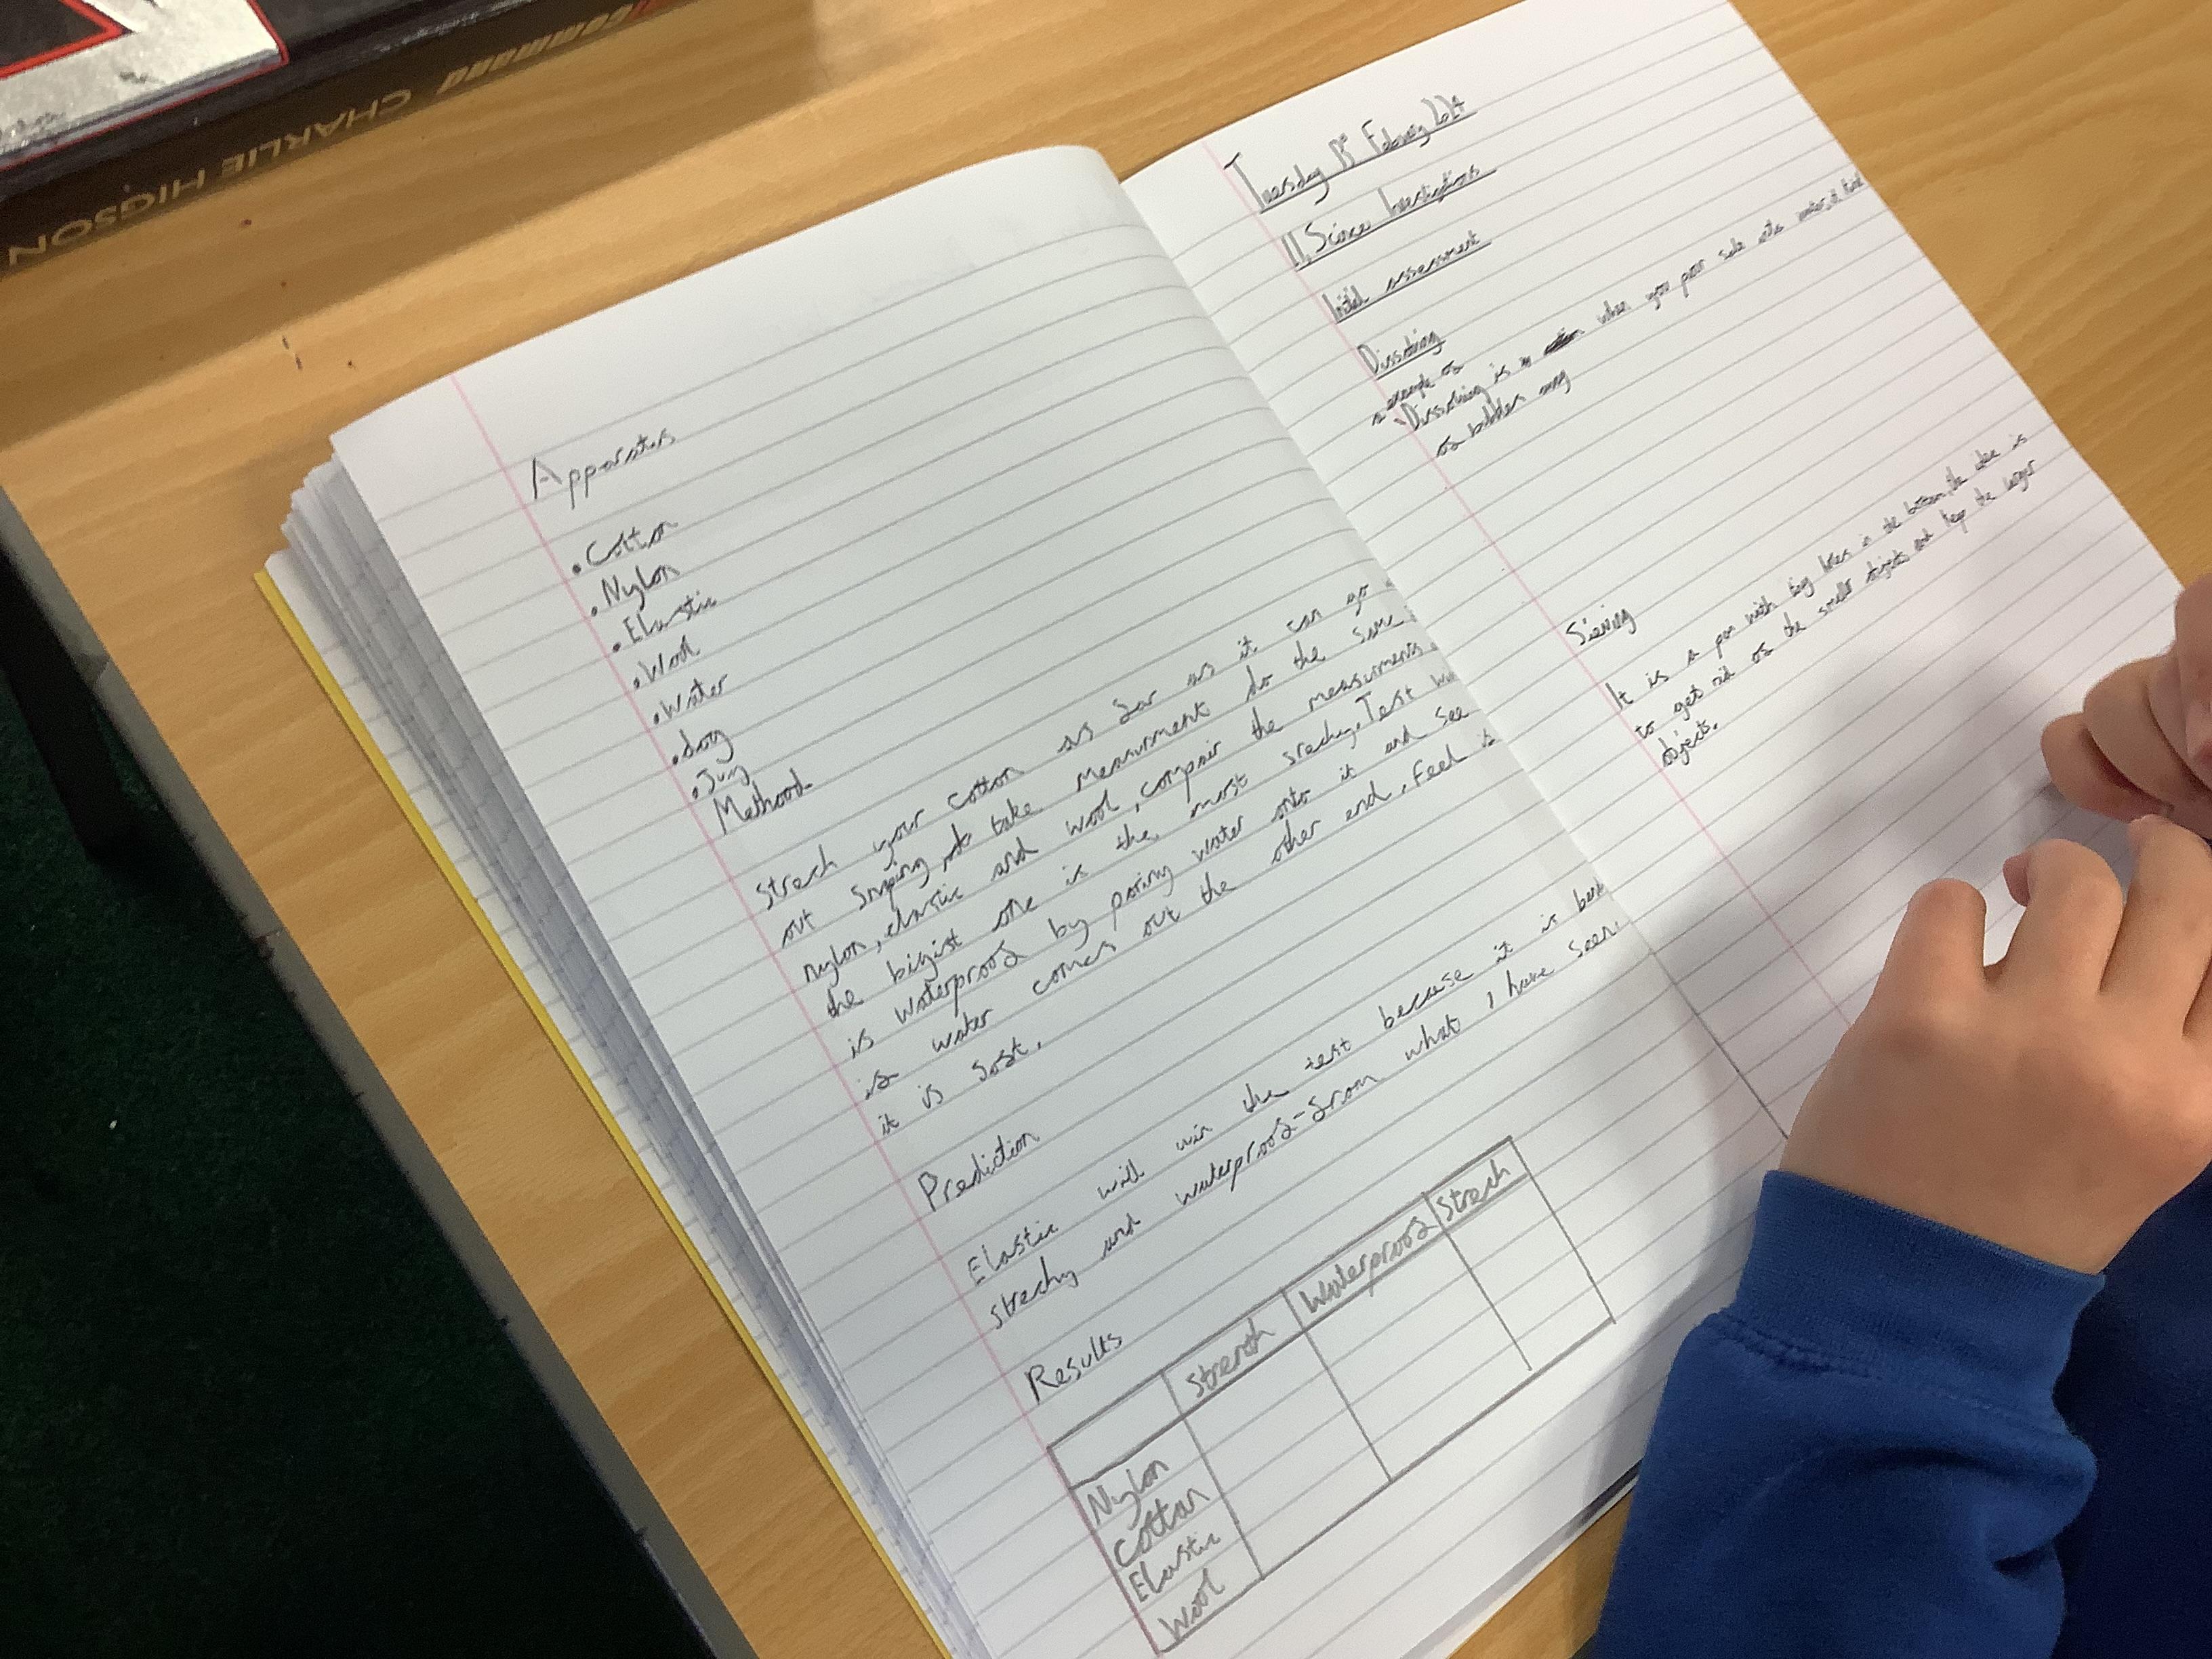 CHARLIE HIGSON
Apparatus
• Cotton
• Nylon
• Elastic
• Wool
• Water
• Jug
Methood
Strech your cotton as far as it can go
out snaping take measurment do the same
nylon, elastic and wool, compair the measurments
the bigist one is the most strechy. Test
is waterproof by poring water onto it and see
if water comes out the other end. Feel if
it is soft.
Prediction
Elastic will win the test because it is both
strechy and waterproof from what I have seen.
Results
Strenth Waterproof Strech
Nylon
Cotton
Elastic
Wool
Tuesday February
Science Investigations
Initial assessment
Dissolving
a example of
Dissolving is when you poor salt into water, it
Sieving
It is a pan with big holes in the bottom, the idea is
to get rid of the smaller objects and keep the larger
objects.